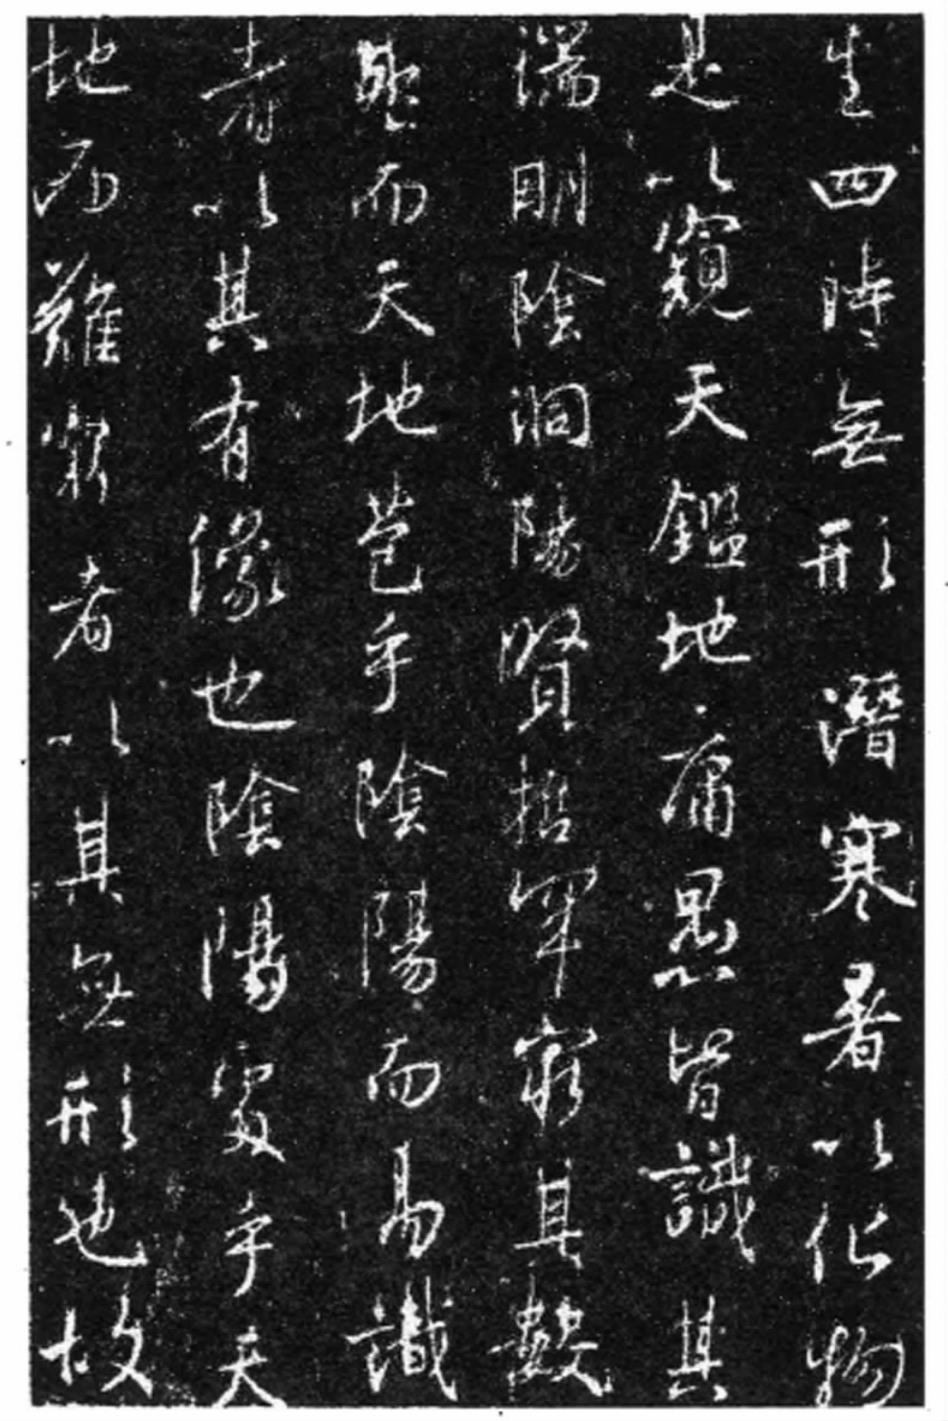 生四時無形潛寒暑以化物
是以窺天鑑地庸愚皆識其
端明陰洞陽賢哲罕窮其數
然而天地苞乎陰陽而易識
者以其有像也陰陽處乎天
地而難窮者以其無形也故